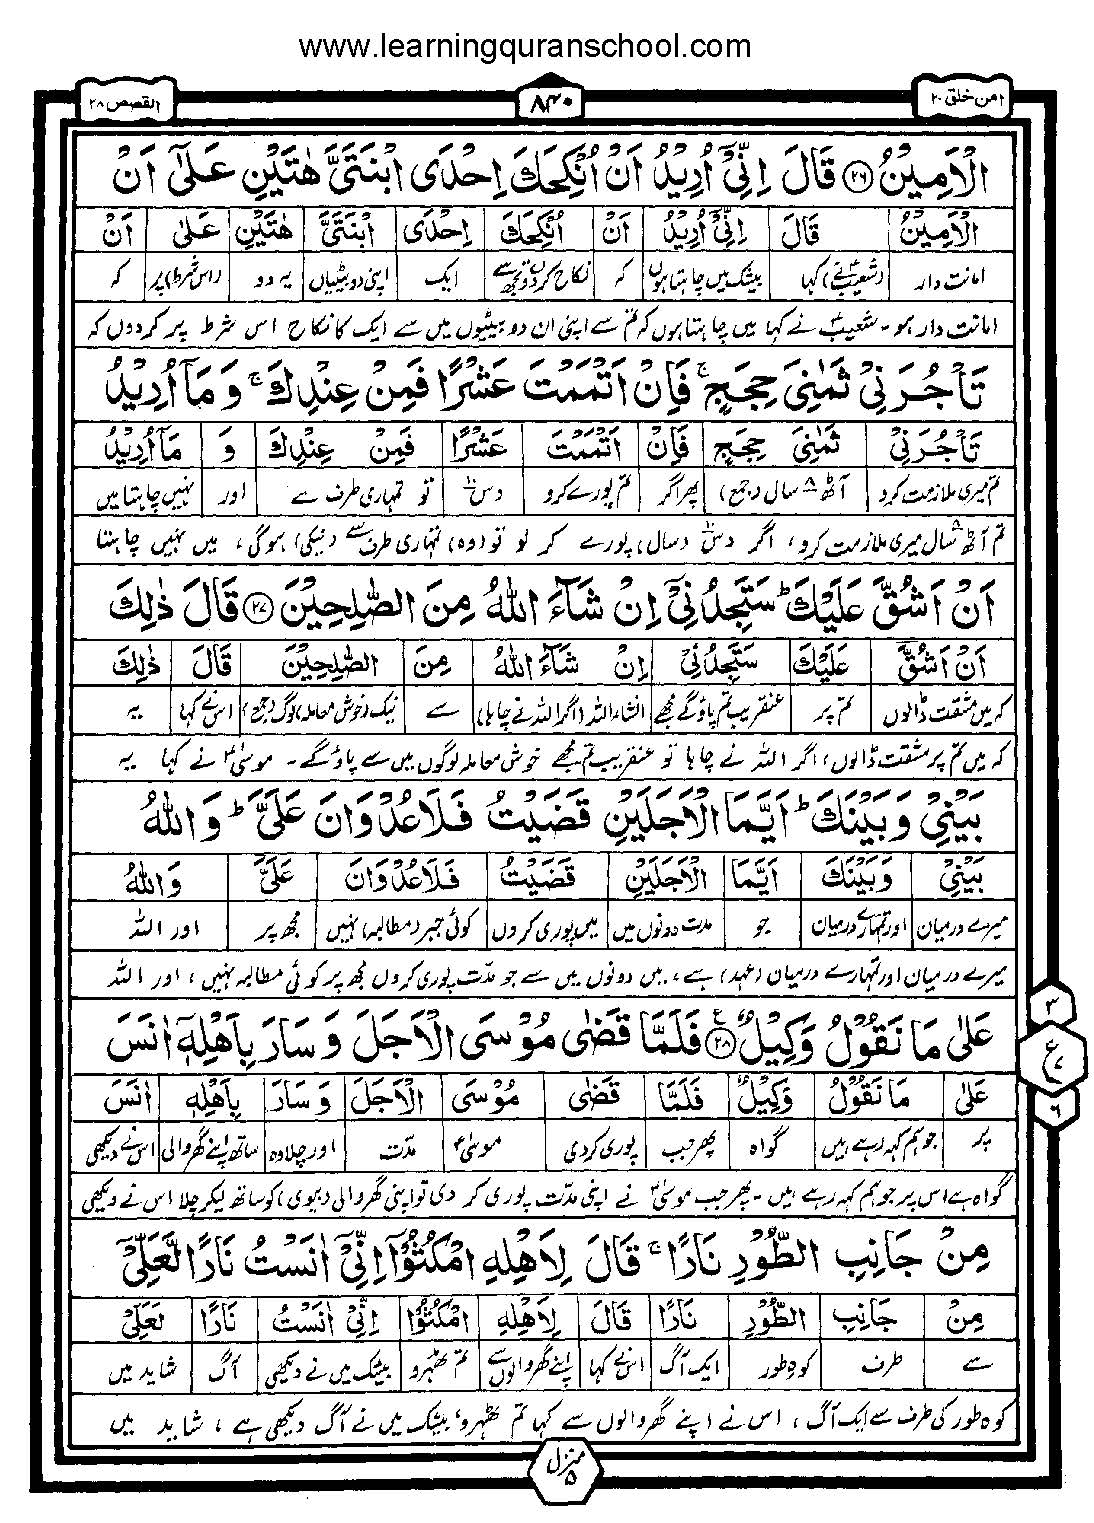 www.learningquranschool.com
امن خلق ۲۰
۸۴۰
القصص ۲۸
الْاَمِيْنُ ﴿۲۶﴾ قَالَ اِنِّيْۤ اُرِيْدُ اَنْ اُنْكِحَكَ اِحْدَى ابْنَتَيَّ هٰتَيْنِ عَلٰۤى اَنْ
الْاَمِيْنُ قَالَ اِنِّيْۤ اُرِيْدُ اَنْ اُنْكِحَكَ اِحْدَى ابْنَتَيَّ هٰتَيْنِ عَلٰۤى اَنْ
امانت دار (شعیبؑ نے) کہا بیشک میں چاہتا ہوں کہ نکاح کردوں تجھ سے ایک اپنی دو بیٹیاں یہ دو (اس شرط) پر کہ
امانت دار ہو۔ شعیبؑ نے کہا میں چاہتا ہوں کہ تم سے اپنی ان دو بیٹیوں میں سے ایک کا نکاح اس شرط پر کردوں کہ
تَاْجُرَنِيْ ثَمٰنِيَ حِجَجٍ ۚ فَاِنْ اَتْمَمْتَ عَشْرًا فَمِنْ عِنْدِكَ ۚ وَ مَاۤ اُرِيْدُ
تَاْجُرَنِيْ ثَمٰنِيَ حِجَجٍ فَاِنْ اَتْمَمْتَ عَشْرًا فَمِنْ عِنْدِكَ وَ مَاۤ اُرِيْدُ
تم میری ملازمت کرو آٹھ ۸ سال (جمع) پھر اگر تم پورے کرو دس ۱۰ تو تمہاری طرف سے اور نہیں چاہتا میں
تم آٹھ ۸ سال میری ملازمت کرو، اگر دس ۱۰ (سال) پورے کر لو تو (وہ) تمہاری طرف سے (نیکی) ہوگی، میں نہیں چاہتا
اَنْ اَشُقَّ عَلَيْكَ ؕ سَتَجِدُنِيْۤ اِنْ شَآءَ اللّٰهُ مِنَ الصّٰلِحِيْنَ ﴿۲۷﴾ قَالَ ذٰلِكَ
اَنْ اَشُقَّ عَلَيْكَ سَتَجِدُنِيْۤ اِنْ شَآءَ اللّٰهُ مِنَ الصّٰلِحِيْنَ قَالَ ذٰلِكَ
کہ میں مشقت ڈالوں تم پر عنقریب تم پاؤگے مجھے انشاء اللہ (اگر اللہ نے چاہا) سے نیک (خوش معاملہ) لوگ (جمع) اس نے کہا یہ
کہ میں تم پر مشقت ڈالوں، اگر اللہ نے چاہا تو عنقریب تم مجھے خوش معاملہ لوگوں میں سے پاؤگے۔ موسیٰؑ نے کہا یہ
بَيْنِيْ وَ بَيْنَكَ ؕ اَيَّمَا الْاَجَلَيْنِ قَضَيْتُ فَلَا عُدْوَانَ عَلَيَّ ؕ وَ اللّٰهُ
بَيْنِيْ وَ بَيْنَكَ اَيَّمَا الْاَجَلَيْنِ قَضَيْتُ فَلَا عُدْوَانَ عَلَيَّ وَ اللّٰهُ
میرے درمیان اور تمہارے درمیان جو مدت دونوں میں میں پوری کروں کوئی جبر (مطالبہ) نہیں مجھ پر اور اللہ
میرے درمیان اور تمہارے درمیان (عہد) ہے، میں دونوں میں سے جو مدّت پوری کروں مجھ پر کوئی مطالبہ نہیں، اور اللہ
عَلٰى مَا نَقُوْلُ وَكِيْلٌ ﴿۲۸﴾ ع فَلَمَّا قَضٰى مُوْسَى الْاَجَلَ وَ سَارَ بِاَهْلِهٖۤ اٰنَسَ
۳
ع ۷
۶
عَلٰى مَا نَقُوْلُ وَكِيْلٌ فَلَمَّا قَضٰى مُوْسَى الْاَجَلَ وَ سَارَ بِاَهْلِهٖۤ اٰنَسَ
پر جو ہم کہہ رہے ہیں گواہ پھر جب پوری کردی موسیٰؑ مدّت اور چلا وہ ساتھ اپنے گھر والی اس نے دیکھی
گواہ ہے اس پر جو ہم کہہ رہے ہیں۔ پھر جب موسیٰؑ نے اپنی مدّت پوری کر دی تو اپنی گھر والی (بیوی) کو ساتھ لیکر چلا اس نے دیکھی
مِنْ جَانِبِ الطُّوْرِ نَارًا ۚ قَالَ لِاَهْلِهِ امْكُثُوْۤا اِنِّيْۤ اٰنَسْتُ نَارًا لَّعَلِّيْۤ
مِنْ جَانِبِ الطُّوْرِ نَارًا قَالَ لِاَهْلِهِ امْكُثُوْۤا اِنِّيْۤ اٰنَسْتُ نَارًا لَعَلِّيْۤ
سے طرف کوہِ طور ایک آگ اس نے کہا اپنے گھر والوں سے تم ٹھہرو بیشک میں نے دیکھی آگ شاید میں
کوہ طور کی طرف سے ایک آگ، اس نے اپنے گھر والوں سے کہا تم ٹھہرو، بیشک میں نے آگ دیکھی ہے، شاید میں
منزل ۵